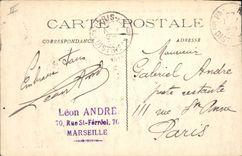 CARTE POSTALE
CORRESPONDANCE
ADRESSE
Monsieur
Gabriel André
poste restante
111 rue Ste Anne
Paris
Léon André
Léon ANDRÉ
70, Rue St-Férréol, 70
MARSEILLE